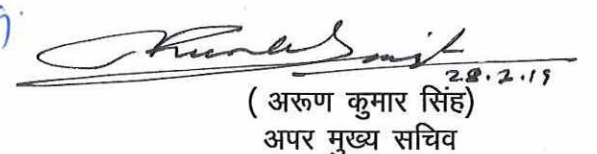 28.2.19
( अरूण कुमार सिंह)
अपर मुख्य सचिव